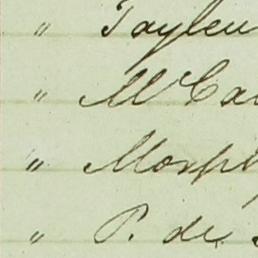 " Tayleu
" McCa
" Morph
" P. de